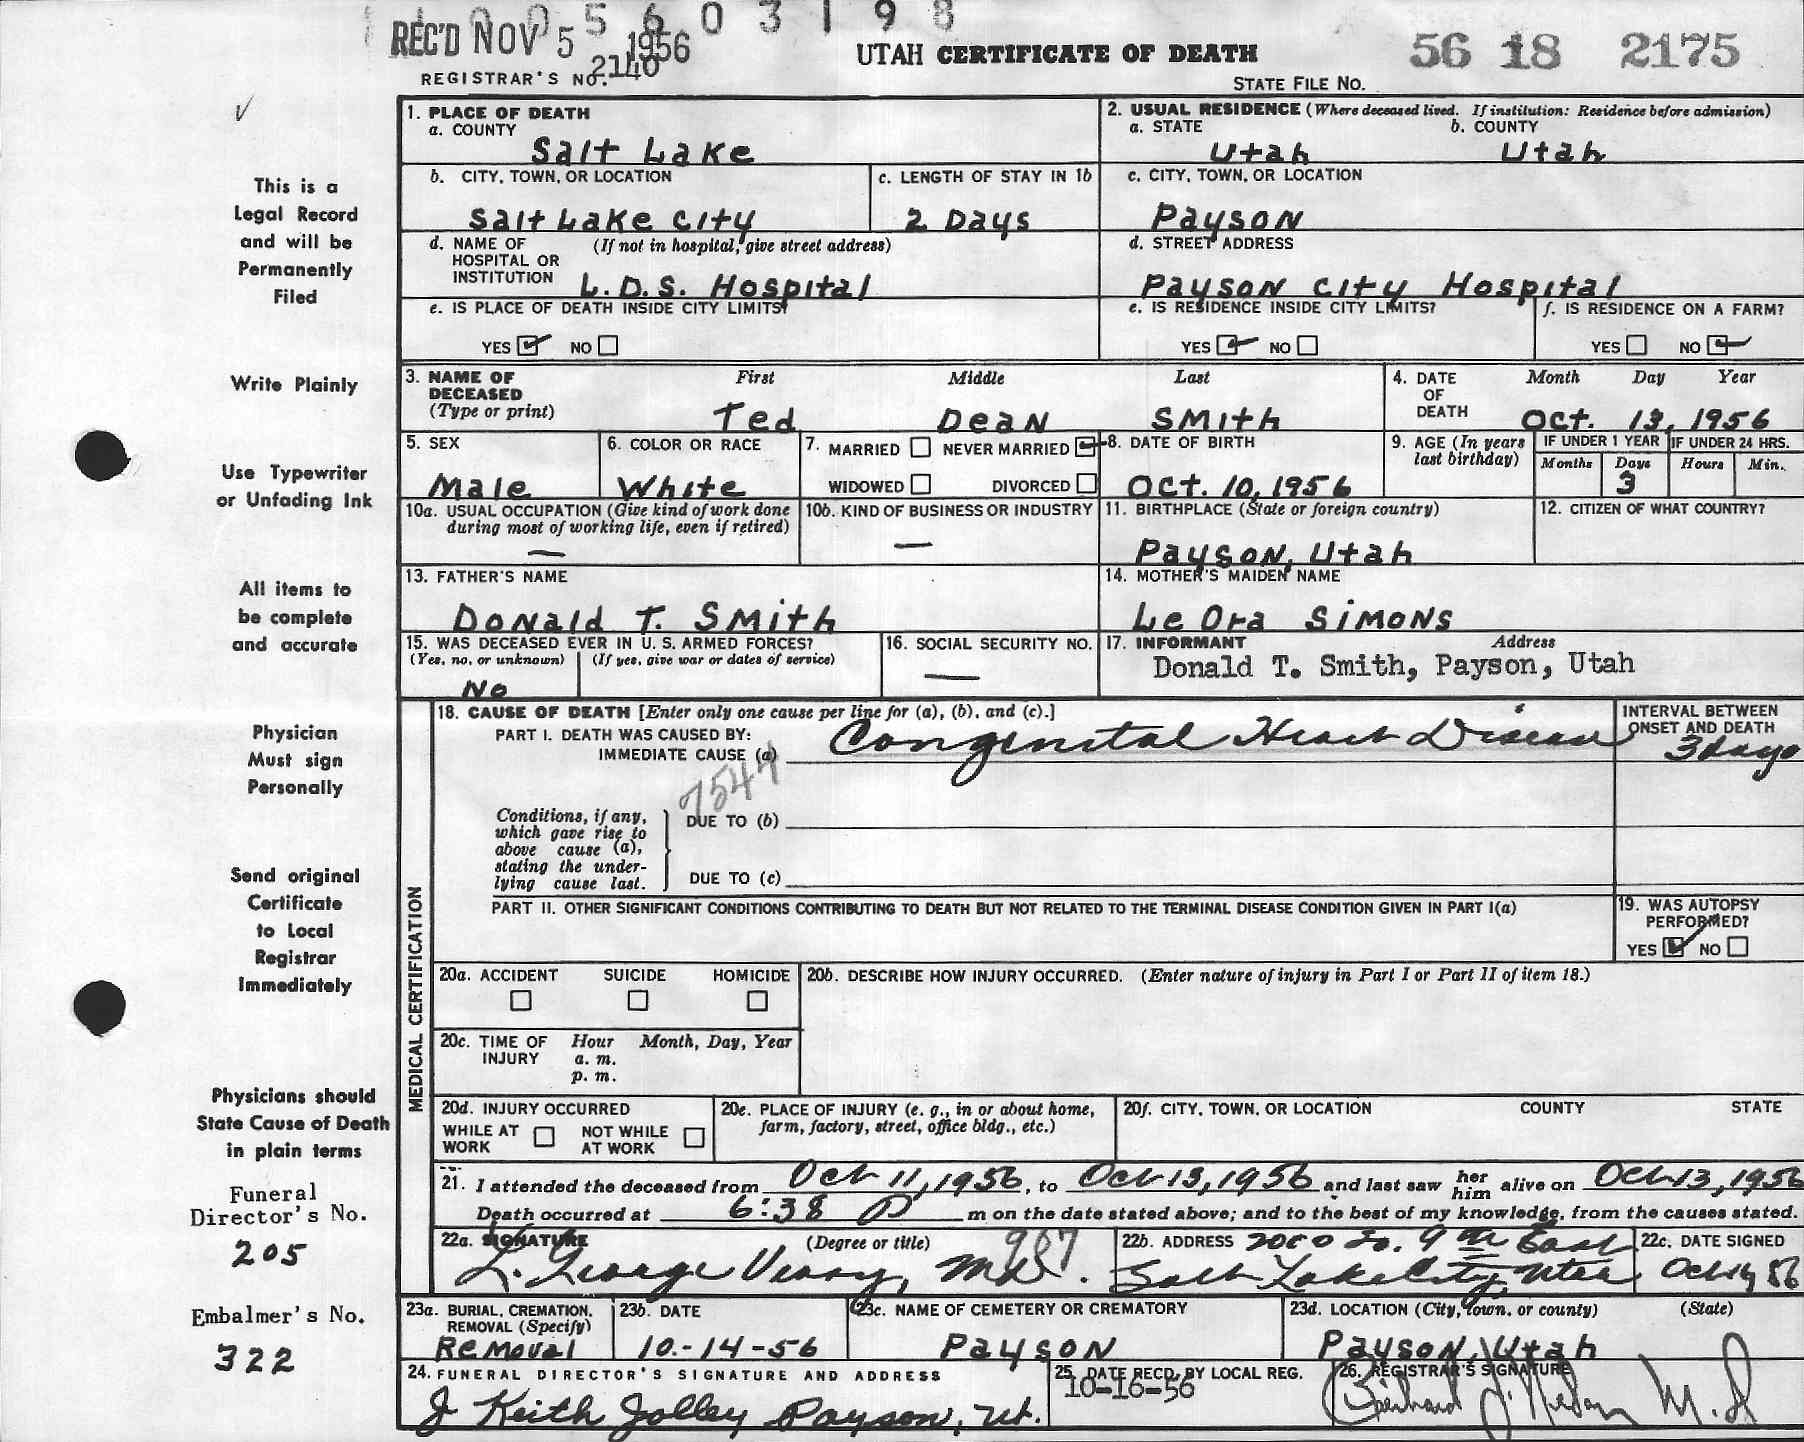 REC'D NOV 5 1956
5 6 0 3 1 9 8
REGISTRAR'S NO. 2140
UTAH CERTIFICATE OF DEATH
56 18 2175
STATE FILE NO.
This is a
Legal Record
and will be
Permanently
Filed
Write Plainly
Use Typewriter
or Unfading Ink
All items to
be complete
and accurate
Physician
Must sign
Personally
Send original
Certificate
to Local
Registrar
Immediately
Physicians should
State Cause of Death
in plain terms
Funeral
Director's No.
205
Embalmer's No.
322
1. PLACE OF DEATH
a. COUNTY
Salt Lake
2. USUAL RESIDENCE (Where deceased lived. If institution: Residence before admission)
a. STATE b. COUNTY
Utah Utah
b. CITY, TOWN, OR LOCATION
Salt Lake City
c. LENGTH OF STAY IN 1b
2 Days
c. CITY, TOWN, OR LOCATION
Payson
d. NAME OF (If not in hospital, give street address)
HOSPITAL OR
INSTITUTION L.D.S. Hospital
d. STREET ADDRESS
Payson City Hospital
e. IS PLACE OF DEATH INSIDE CITY LIMITS?
YES NO
e. IS RESIDENCE INSIDE CITY LIMITS?
YES NO
f. IS RESIDENCE ON A FARM?
YES NO
3. NAME OF First Middle Last
DECEASED
(Type or print) Ted Dean Smith
4. DATE Month Day Year
OF
DEATH Oct. 13, 1956
5. SEX
Male
6. COLOR OR RACE
White
7. MARRIED NEVER MARRIED
WIDOWED DIVORCED
8. DATE OF BIRTH
Oct. 10, 1956
9. AGE (In years
last birthday)
IF UNDER 1 YEAR IF UNDER 24 HRS.
Months Days Hours Min.
3
10a. USUAL OCCUPATION (Give kind of work done
during most of working life, even if retired)
—
10b. KIND OF BUSINESS OR INDUSTRY
—
11. BIRTHPLACE (State or foreign country)
Payson, Utah
12. CITIZEN OF WHAT COUNTRY?
13. FATHER'S NAME
Donald T. Smith
14. MOTHER'S MAIDEN NAME
Le Ora Simons
15. WAS DECEASED EVER IN U. S. ARMED FORCES?
(Yes, no, or unknown) (If yes, give war or dates of service)
No
16. SOCIAL SECURITY NO.
—
17. INFORMANT Address
Donald T. Smith, Payson, Utah
MEDICAL CERTIFICATION
18. CAUSE OF DEATH [Enter only one cause per line for (a), (b), and (c).]
PART I. DEATH WAS CAUSED BY:
IMMEDIATE CAUSE (a) Congenital Heart Disease
INTERVAL BETWEEN
ONSET AND DEATH
3 days
Conditions, if any,
which gave rise to
above cause (a),
stating the under-
lying cause last.
DUE TO (b)
DUE TO (c)
PART II. OTHER SIGNIFICANT CONDITIONS CONTRIBUTING TO DEATH BUT NOT RELATED TO THE TERMINAL DISEASE CONDITION GIVEN IN PART I(a)
19. WAS AUTOPSY
PERFORMED?
YES NO
20a. ACCIDENT SUICIDE HOMICIDE
20b. DESCRIBE HOW INJURY OCCURRED. (Enter nature of injury in Part I or Part II of item 18.)
20c. TIME OF Hour Month, Day, Year
INJURY a. m.
p. m.
20d. INJURY OCCURRED
WHILE AT NOT WHILE
WORK AT WORK
20e. PLACE OF INJURY (e. g., in or about home,
farm, factory, street, office bldg., etc.)
20f. CITY, TOWN, OR LOCATION COUNTY STATE
21. I attended the deceased from Oct 11, 1956, to Oct 13, 1956 and last saw her him alive on Oct 13, 1956
Death occurred at 6:38 P m on the date stated above; and to the best of my knowledge, from the causes stated.
22a. SIGNATURE (Degree or title) 907
L. George Veasy, MD.
22b. ADDRESS 2000 So. 9th East
Salt Lake City, Utah
22c. DATE SIGNED
23a. BURIAL, CREMATION,
REMOVAL (Specify)
Removal
23b. DATE
10-14-56
23c. NAME OF CEMETERY OR CREMATORY
Payson
23d. LOCATION (City, town, or county) (State)
Payson, Utah
24. FUNERAL DIRECTOR'S SIGNATURE AND ADDRESS
J Keith Jolley Payson, Ut.
25. DATE RECD. BY LOCAL REG.
10-16-56
26. REGISTRAR'S SIGNATURE
M.D